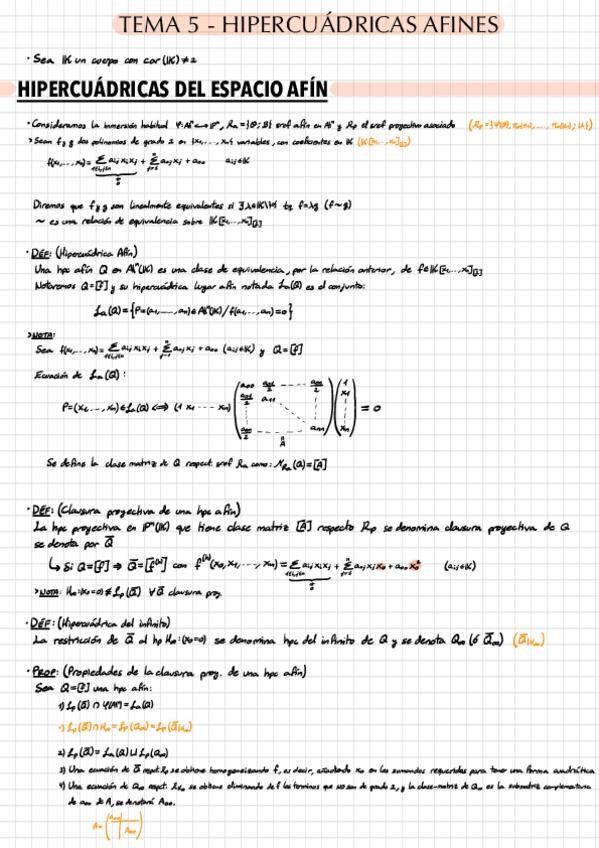 TEMA 5 - HIPERCUÁDRICAS AFINES
· Sea IK un cuerpo con car(IK)≠2
HIPERCUÁDRICAS DEL ESPACIO AFÍN
· Consideramos la inmersión habitual Ψ: Aⁿ↪Pⁿ, Ra={θ; B} sref afín en Aⁿ y Rp el sref proyectivo asociado
> Sean f y g dos polinomios de grado 2 en {x₁,...,xₙ} variables, con coeficientes en IK (IK[x₁,...,xₙ]₍₂₎)
f(x₁,...,xₙ)= Σ aᵢⱼxᵢxⱼ + Σ a₀ⱼxⱼ + a₀₀ aᵢⱼ∈IK
Diremos que f y g son linealmente equivalentes si ∃λ∈IK\{0} tq f=λg (f~g)
~ es una relación de equivalencia sobre IK[x₁,...,xₙ]₍₂₎
· DEF: (Hipercuádrica Afín)
Una hpc afín Q en Aⁿ(IK) es una clase de equivalencia, por la relación anterior, de f∈IK[x₁,...,xₙ]₍₂₎
Notaremos Q=[f] y su hipercuádrica lugar afín notada La(Q) es el conjunto:
La(Q)={P=(a₁,...,aₙ)∈Aⁿ(IK)/f(a₁,...,aₙ)=0}
> NOTA:
Sea f(x₁,...,xₙ)= Σ aᵢⱼxᵢxⱼ + Σ a₀ⱼxⱼ + a₀₀ (aᵢⱼ∈IK) y Q=[f]
Ecuación de La(Q):
P=(x₁,...,xₙ)∈La(Q) ⟺ (1 x₁ --- xₙ) (a₀₀ a₀₁/2 --- a₀ₙ/2; a₀₁/2 a₁₁; a₀ₙ/2 --- aₙₙ) (1 x₁ ⋮ xₙ) = 0
A
Se define la clase matriz de Q respect. sref Ra como: M_Ra(Q)=[A]
· DEF: (Clausura proyectiva de una hpc afín)
La hpc proyectiva en Pⁿ(IK) que tiene clase matriz [A] respecto Rp se denomina clausura proyectiva de Q
se denota por Q̄
↳ Si Q=[f] ⇒ Q̄=[f⁽ʰ⁾] con f⁽ʰ⁾(x₀,x₁,...,xₙ)= Σ aᵢⱼxᵢxⱼ + Σ a₀ⱼxⱼx₀ + a₀₀x₀² (aᵢⱼ∈IK)
> NOTA: H∞:(x₀=0) ⊄ Lp(Q̄) ∀Q̄ clausura proy.
· DEF: (Hipercuádrica del infinito)
La restricción de Q̄ al hp H∞:(x₀=0) se denomina hpc del infinito de Q y se denota Q∞ (ó Q̄∞) (Q̄|H∞)
· PROP: (Propiedades de la clausura proy. de una hpc afín)
Sea Q=[f] una hpc afín:
1) Lp(Q̄) ∩ Ψ(Aⁿ)=La(Q)
·) Lp(Q̄)∩H∞=Lp(Q∞)=Lp(Q̄|H∞)
2) Lp(Q̄)=La(Q)⊔Lp(Q∞)
3) Una ecuación de Q̄ respt. Rp se obtiene homogeneizando f, es decir, añadiendo x₀ en los sumandos requeridos para tener una forma cuadrática
4) Una ecuación de Q∞ respt. R∞ se obtiene eliminando de f los términos que no son de grado 2, y la clase-matriz de Q∞ es la submatriz complementaria
de a₀₀ de A, se denotará A₀₀.
A=(a₀₀ | ; A₀₀)